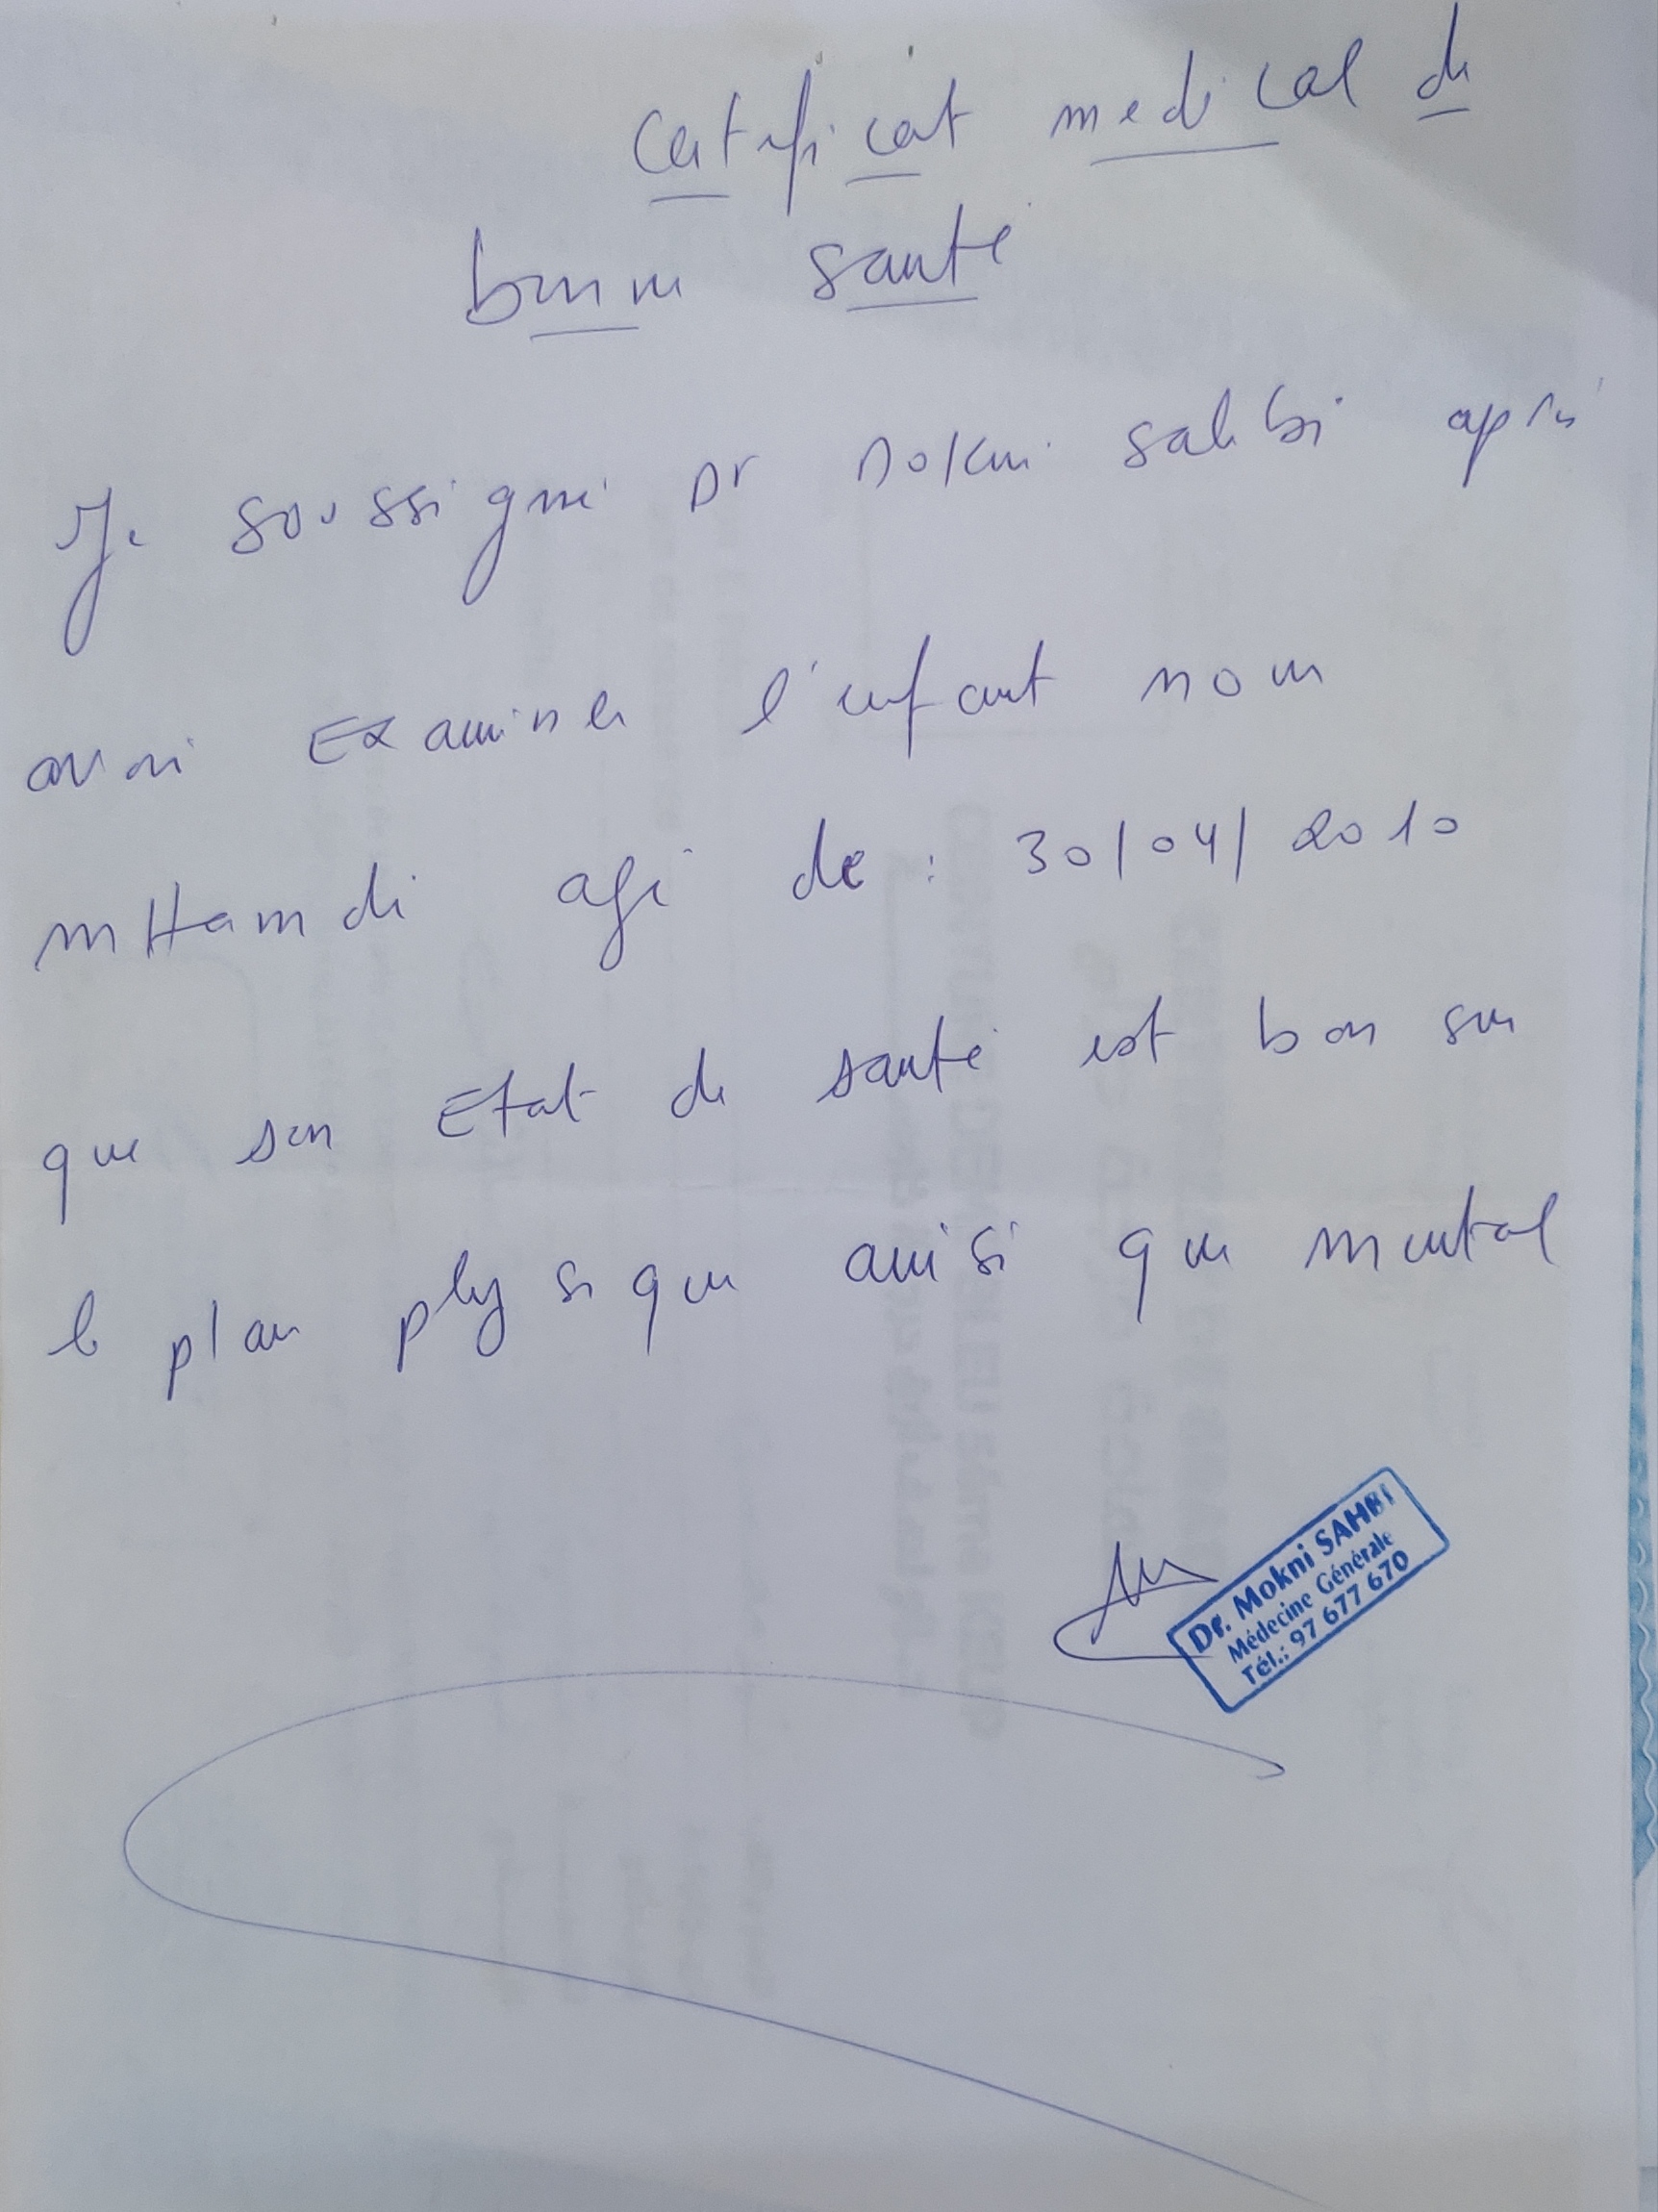 Certificat medical de
bonne santé
Je soussigné Dr Mokni sahbi après
avoir Examiner l'enfant nour
mHamdi agé de : 30/04/2010
que son Etat de santé est bon sur
le plan physique ainsi que mental
Dr. Mokni SAHBI
Médecine Générale
Tél.: 97 677 670